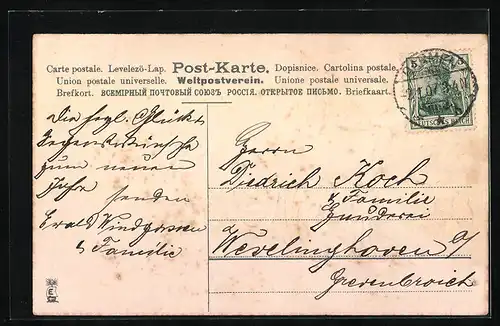 Carte postale. Levelezö-Lap. Post-Karte. Dopisnice. Cartolina postale.
Union postale universelle. Weltpostverein. Unione postale universale.
Brefkort. ВСЕМІРНЫЙ ПОЧТОВЫЙ СОЮЗЪ РОССІЯ. ОТКРЫТОЕ ПИСЬМО. Briefkaart.
DEUTSCHES REICH
Die hzgl. Glück&
Segenswünsche
zum neuen
Jahre senden
Ewald Windgassen
& Familie
Herrn
Diedrich Koch
& Familie
Wevelinghoven a/
Grevenbroich